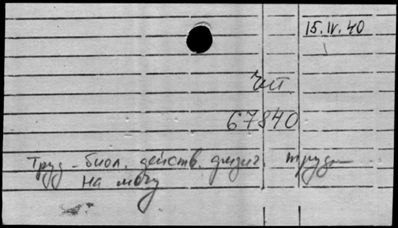 15.IV.40
Чит.
67840
Труд - биол. действ. физич. труда
на мочу